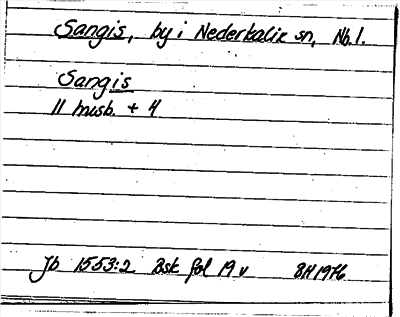 Sangis, by i Nederkalix sn, Nb. l.
Sangis
11 husb. + 4
Jb 1553:2 Bsk fol 19 v BH 1976